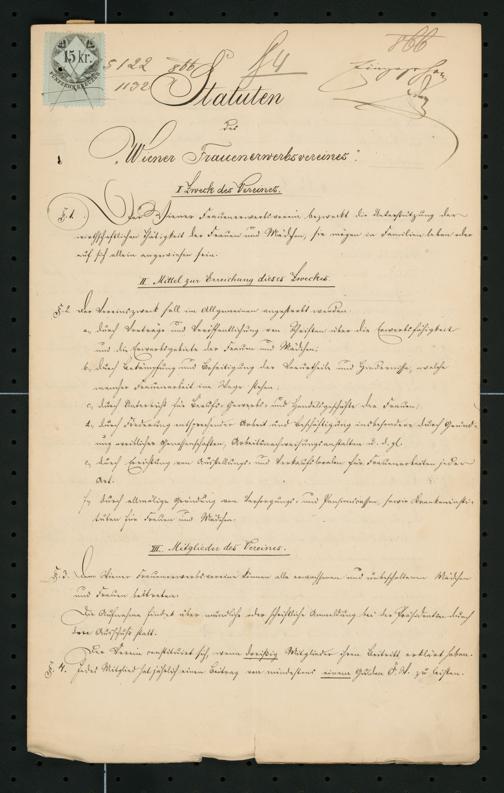 15 kr.
5122 866 § 4 866
1132
Statuten
des
„Wiener Frauenerwerbsvereines“.
I Zweck des Vereines.
§. 1. Der Wiener Frauenerwerbverein bezweckt die Unterstützung der
wirthschaftlichen Thätigkeit der Frauen und Mädchen, sie mögen in Familien leben oder
auf sich allein angewiesen sein.
II. Mittel zur Erreichung dieses Zweckes.
§. 2. Der Vereinszweck soll im Allgemeinen angestrebt werden:
a, durch Vorträge und Veröffentlichung von Schriften über die Erwerbsfähigkeit
und die Erwerbsgebiete der Frauen und Mädchen;
b, durch Bekämpfung und Beseitigung der Vorurtheile und Hindernisse, welche
mancher Frauenarbeit im Wege stehen;
c, durch Unterricht für Berufs-, Gewerbs- und Handelsgeschäfte der Frauen;
d, durch Förderung entsprechender Arbeit und Beschäftigung insbesondere durch Gründ-
ung weiblicher Genossenschaften, Arbeitsnachweisungsanstalten u. d. gl.
e, durch Errichtung von Ausstellungs- und Verkaufslocalen für Frauenarbeiten jeder
Art.
f, durch allmälige Gründung von Versorgungs- und Pensionscassen, sowie Krankeninsti-
tuten für Frauen und Mädchen.
III. Mitglieder des Vereines.
§. 3. Dem Wiener Frauenerwerbvereine können alle erwachsenen und unbescholtenen Mädchen
und Frauen beitreten.
Die Aufnahme findet über mündliche oder schriftliche Anmeldung bei der Präsidentin durch
den Ausschuß statt.
Der Verein constituirt sich, wenn dreißig Mitglieder ihren Beitritt erklärt haben.
§. 4. Jedes Mitglied hat jährlich einen Beitrag von mindestens einem Gulden Ö. W. zu leisten.